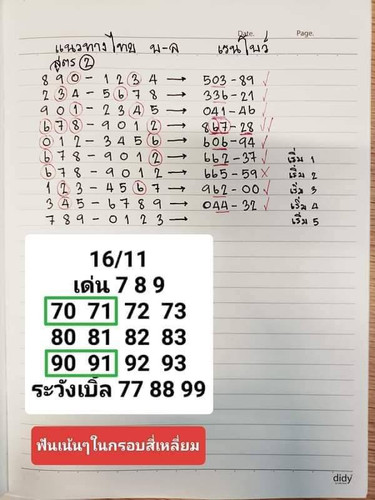 Date. Page.
แนวทางไทย บ-ล เรนโบว์
สูตร ②
890-1234 → 503-89 ✓
234-5678 → 336-21 ✓
901-2345 → 041-46 ✓
678-9012 → 867-28 ✓✓
012-3456 → 606-94 ✓
678-9012 → 662-37 ✓ เริ่ม 1
678-9012 → 665-59 × เริ่ม 2
123-4567 → 962-00 ✓ เริ่ม 3
345-6789 → 044-32 ✓ เริ่ม 4
789-0123 → เริ่ม 5
16/11
เด่น 7 8 9
70 71 72 73
80 81 82 83
90 91 92 93
ระวังเบิ้ล 77 88 99
ฟันเน้นๆในกรอบสี่เหลี่ยม
didy